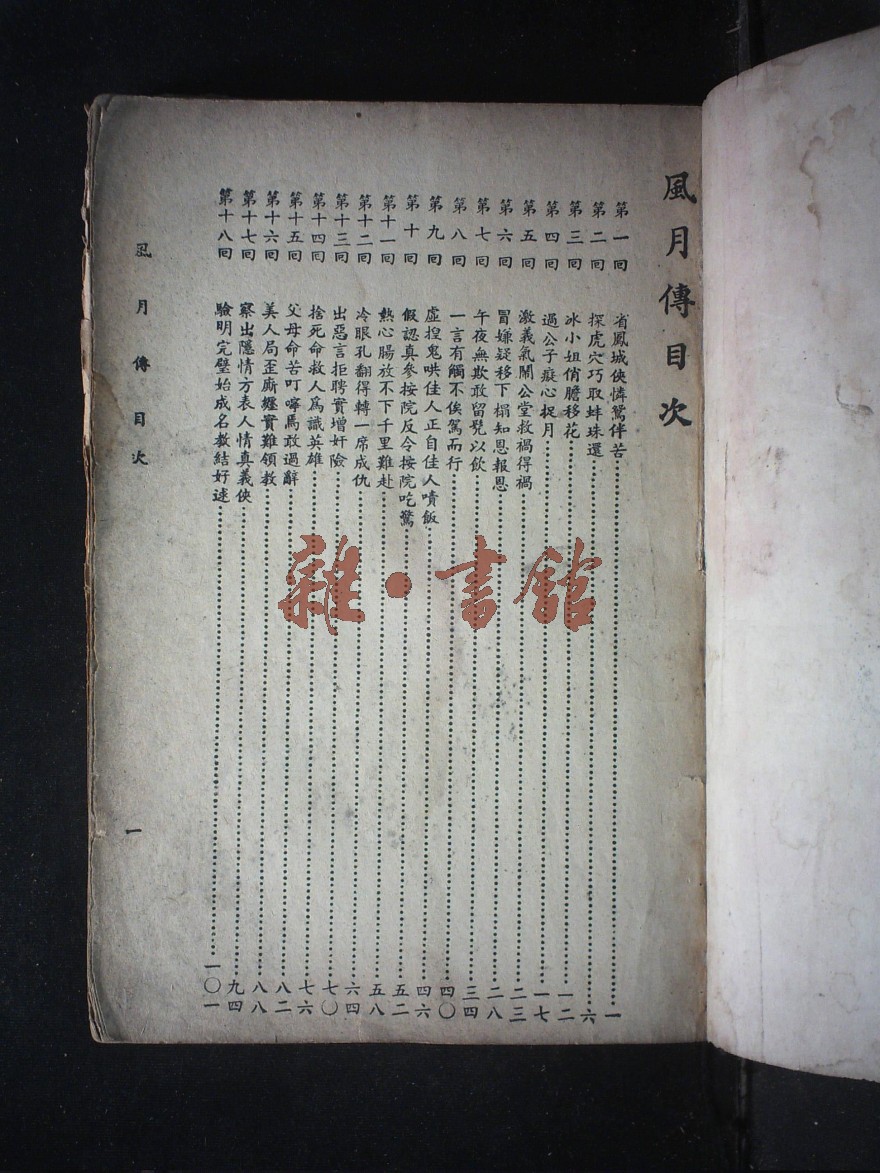 風月傳目次
第一回 省鳳城俠憐鴛伴苦 一
第二回 探虎穴巧取蚌珠還 六
第三回 冰小姐俏膽移花 一二
第四回 過公子癡心捉月 一七
第五回 激義氣鬧公堂救禍得禍 二三
第六回 冒嫌疑移下榻知恩報恩 二八
第七回 午夜無欺敢留髠以飲 三四
第八回 一言有觸不俟駕而行 四〇
第九回 虛捏鬼哄佳人正自佳人噴飯 四六
第十回 假認真參按院反令按院吃驚 五二
第十一回 熱心腸放不下千里難赴 五八
第十二回 冷眼孔翻得轉一席成仇 六四
第十三回 出惡言拒聘實增奸險 七〇
第十四回 捨死命救人爲識英雄 七六
第十五回 父母命苦叮嚀焉敢過辭 八二
第十六回 美人局歪廝纏實難領教 八八
第十七回 察出隱情方表人情真義俠 九四
第十八回 驗明完璧始成名教結好逑 一〇一
風月傳目次
一
雜·書館